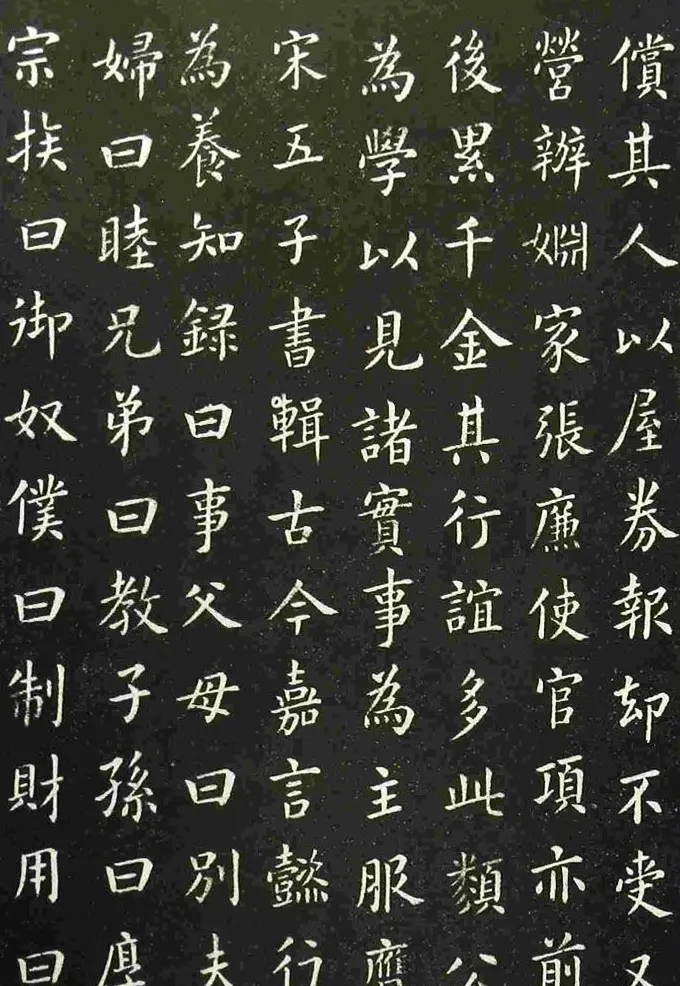 償其人以屋券報却不受又
營辦姻家張廉使官項亦前
後累千金其行誼多此類公
為學以見諸實事為主服膺
宋五子書輯古今嘉言懿行
為養知録曰事父母曰別夫
婦曰睦兄弟曰教子孫曰厚
宗族曰御奴僕曰制財用曰